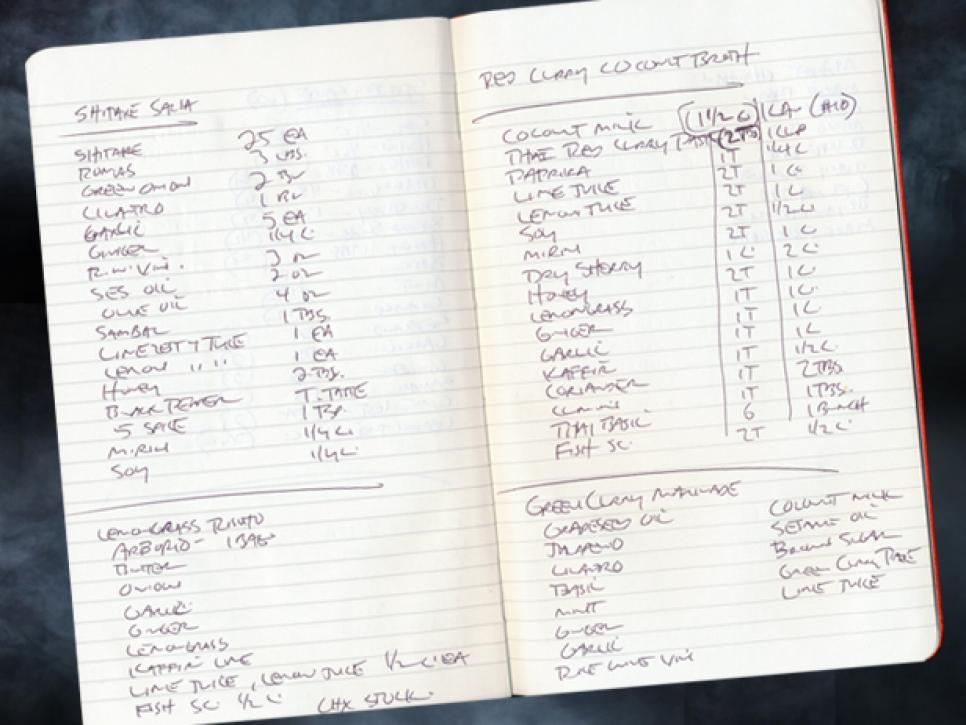 SHITAKE SALSA
SHITAKE 25 EA
ROMAS 3 LBS.
GREEN ONION 2 BU
CILANTRO 1 BU
GARLIC 5 EA
GINGER 1/4 C.
R.W. VIN. 3 OZ
SES OIL 2 OZ
OLIVE OIL 4 OZ
SAMBAL 1 TBS.
LIME ZEST & JUICE 1 EA
LEMON " " 1 EA
HONEY 2 TBS.
BLACK PEPPER T. TASTE
5 SPICE 1 TSP.
MIRIN 1/4 C.
SOY 1/4 C.
LEMONGRASS RISOTTO
ARBORIO - 1 BAG
BUTTER
ONION
GARLIC
GINGER
LEMONGRASS
KAFFIR LIME
LIME JUICE, LEMON JUICE 1/2 C. EA
FISH SC. 1/2 C. CHX STOCK.
RED CURRY COCONUT BROTH
COCONUT MILK (1 1/2 C) 1 CAN (#10)
THAI RED CURRY PASTE (2TBS) 1 CUP
PAPRIKA 1T 1/4 C
LIME JUICE 2T 1 C
LEMON JUICE 2T 1 C
SOY 2T 1/2 C
MIRIN 2T 1 C
DRY SHERRY 1 C 2 C
HONEY 2T 1 C
LEMONGRASS 1T 1 C
GINGER 1T 1 C
GARLIC 1T 1 C
KAFFIR 1T 1/2 C.
CORIANDER 1T 2 TBS
1T 1 TBS.
THAI BASIL 6 1 BUNCH
FISH SC. 2T 1/2 C.
GREEN CURRY MARINADE
GRAPESEED OIL COCONUT MILK
JALAPENO SESAME OIL
CILANTRO BROWN SUGAR
BASIL GREEN CURRY PASTE
MINT LIME JUICE
GINGER
GARLIC
RICE WINE VIN